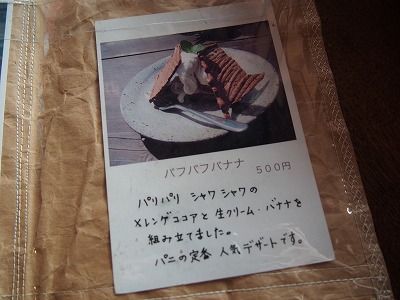 パフパフバナナ 500円
パリパリ シャワシャワの
メレンゲココアと生クリーム・バナナを
組み立てました。
パニの定番 人気デザートです。